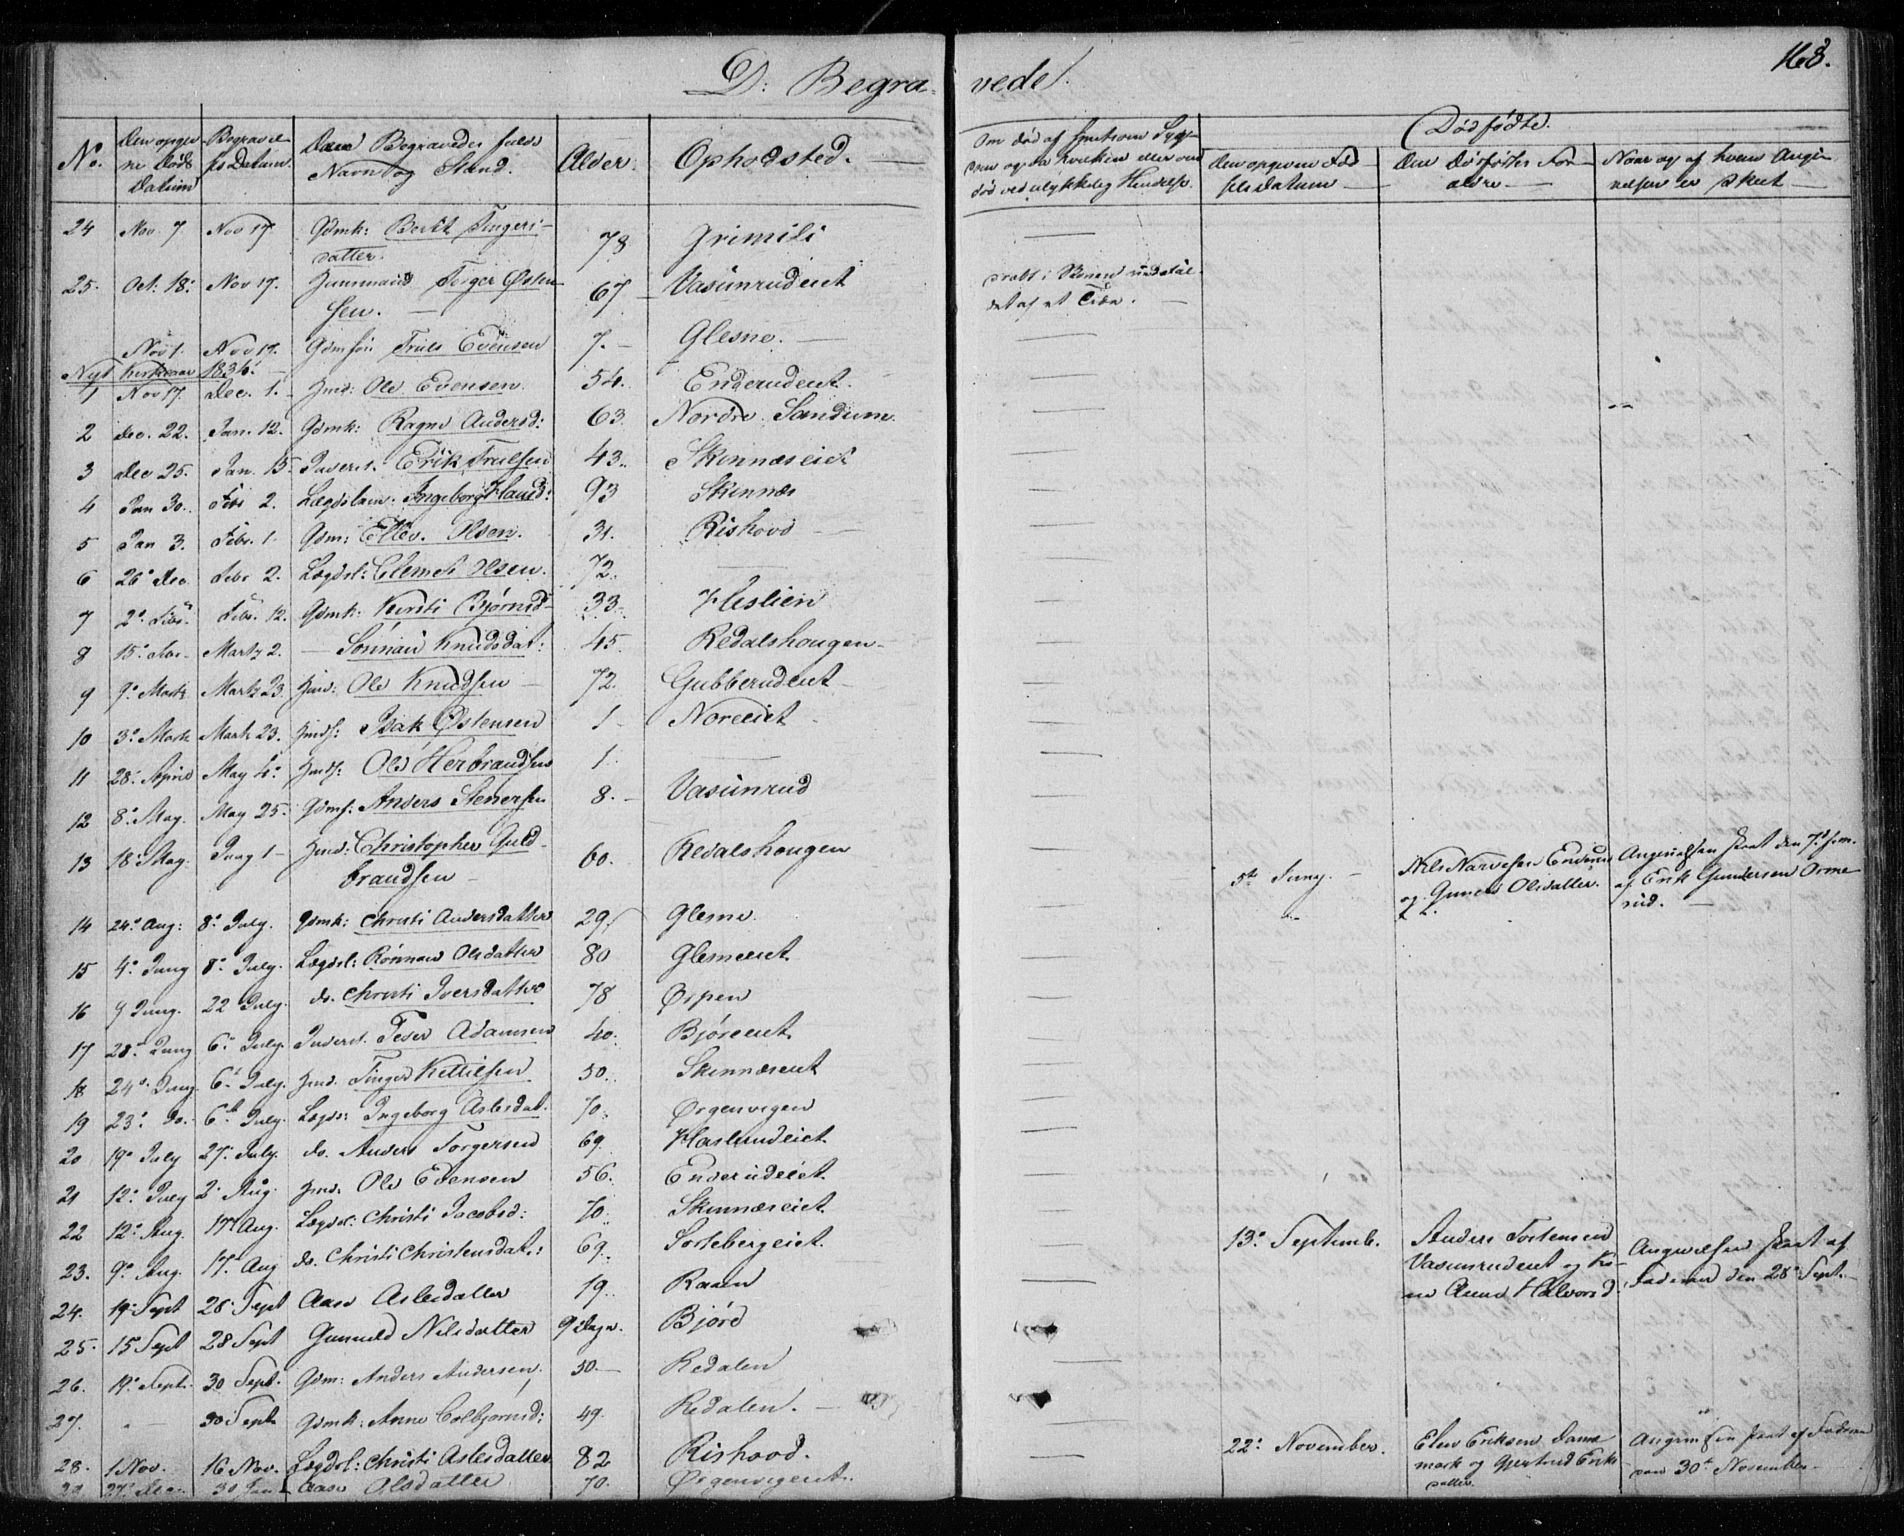 168.
D: Begravede.
No. Den opgivne Døds Datum Begravelses Datum. Den Begravedes fulde Navn og Stand. Alder. Opholdsted. Om død af Sygdom og da hvilken eller om død ved ulykkelig Hendelse. Dødfødte.
Den opgivne Fødselsdatum Den Dødfødtes Forældre Naar og af hvem Angivelsen er skeet
24 Nov 7 Nov 17. Gdmk: Berthe Fingersdatter. 78 Grimeli
25. Oct. 18. Nov 17. Huusmand Torger Østensen. 67 Vasunrudeiet
Nov 1. Nov 17. Gdmsøn Truls Evensen 7. Glesne.
Nyt Kirkeaar 1834.
1 Nov 17. Dec. 1. Hmd: Ole Evensen. 54. Enderudeiet.
2 Dec. 22. Jan. 12. Gdmk: Ragne Andersd: 63. Nordre Sandum.
3 Dec 25. Jan. 15. Inderst. Erik Trulsen 43. Skinnæseiet
4 Jan 30. Febr 2. Lægdslem. Ingeborg 93 Skinnæs
5 Jan 3. Febr. 1. Gdm: Ellev. Olsen. 31. Rishovd
6 26 Dec. Febr. 2. Lægdsl: Clemet Olsen. 72.
7 2. Febr. Febr. 12. Gdmk: Kirsti Bjørnsd 33. Heslien
8 15. Febr. Martz 2. Knudsdat: 45. Redalshougen
9 9. Martz Martz 23. Hmd: Ole Knudsen 72. Gubberudeiet
10 3. Martz Martz 23. Hmds: Isak Østensen 1 Noreeiet
11 28. April May 4. Hmds: Ole Herbrandsen 1.
12 8. May. May 25. Gdms: Anders Stenersen 8. Vasunrud
13 18. May. Juny 1 Hmd: Christopher Guldbrandsen 60. Redalshougen
5te Juny. Nils Narvesen og Guneld Olsdatter. Angivelsen skeet den 7de s.m. af Erik Gundersen Ormerud.
14 24. Aug: 8. July. Gdmk: Christi Andersdatter 29. Glesne
15 4. Juny 8. July. Lægdsl: Rønnau Olsdatter 80 Glesneeiet
16 9 Juny. 22 July. do. Christi Iversdatter 78 Ørpen
17 28. Juny 6. July. Inderst. Peder Adamsen 40. Bjøreeiet.
18 24. Juny 6. July. Hmd. Finger Kettilsen 50. Skinnæseiet
19 23. do. 6te July. Lægds: Ingeborg Aslesdat. 70. Ørgenvigen
20 19. July 27. July. do. Anders Torgersen 69. Haslundeiet.
21 12. July 2. Aug. Hmd. Ole Evensen 56. Enderudeiet
22 12. Aug. 17. Aug. Lægdsl: Christi Jacobsd: 70. Skinnæseiet.
23. 9. Aug. 17. Aug do. Christi Christensdat.: 69. Sorteberg eiet.
13. Septemb. Anders Torstensen Vasunrudeiet og Kone Anne Halvorsd. Angivelsen skeet af Faderen den 28. Sept.
24. 19. Sept 28. Sept Aase Aslesdatter 19. Raaen
25. 15 Sept 28 Sept Gunneld Nilsdatter 9 dage. Bjøre
26. 19. Sept. 30 Sept. Gdm: Anders Andersen. 50. Redalen
27. 30 Sept. Gdmk: Anne Colbjørnsd: 49. Redalen.
28. 1 Nov. 16 Nov. Lægdsl: Christi Aslesdatter 82 Rishovd.
22. November. Elev Eriksen og Gjertrud Eriksdatter Angivelsen skeet af Faderen den 30te November
29 27 Dec. Aase Olsdatter 70. Ørgenvigeiet.